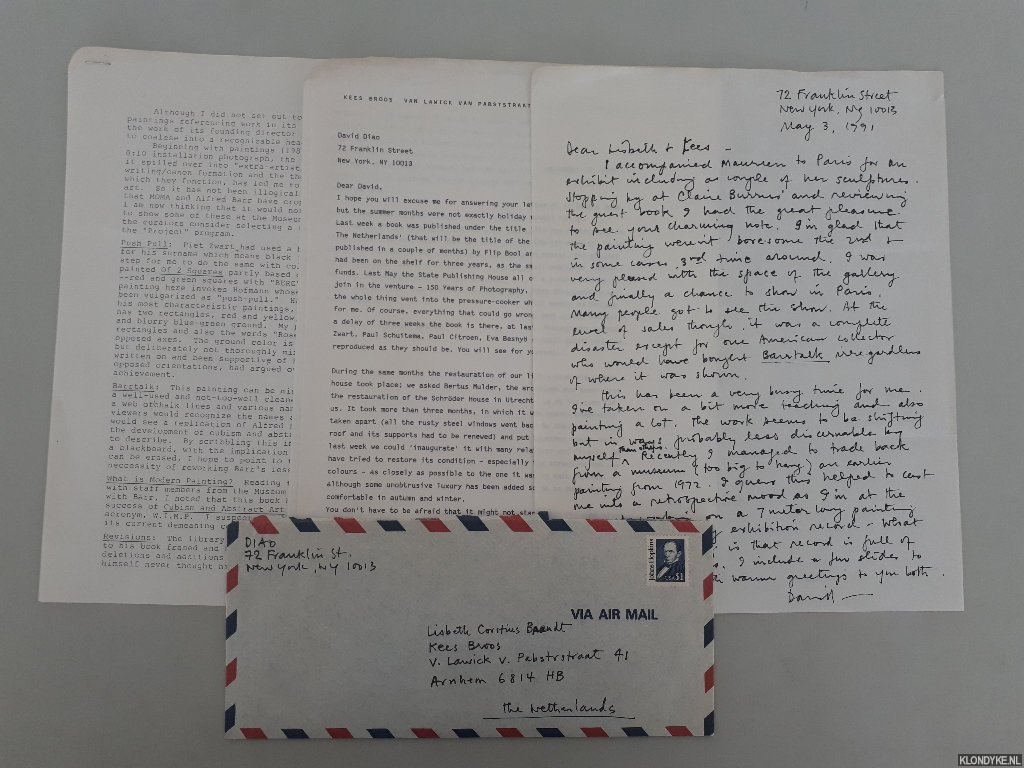 Although I did not set out to
paintings referencing work in its
the work of its founding director
to coalesce into a recognizable hea
Beginning with paintings (198
0:10 installation photograph, the
it spilled over into "extra-artist
writing/canon formation and the th
which they function, has led me to
art. So it has not been illogical
that MOMA and Alfred Barr have crop
I am now thinking that it would not
to show some of these at the Museum
the curators consider selecting a
the "Project" program.
Push Pull: Piet Zwart had used a b
for his surname which means black
step for me to do the same with co
painted Of 2 Squares partly based
--red and green squares with "BERG"
painting here invokes Hofmann whose
been vulgarized as "push-pull." Ha
his most characteristic paintings,
has two rectangles, red and yellow
and blurry blue-green ground. My
rectangles and also the words "Rose
opposed axes. The ground color is
but deliberately not thoroughly mi
written on and been supportive of
opposed orientations, had argued ov
achievement.
Barrtalk: This painting can be mi
a well-used and not-too-well cleane
a web of chalk lines and various nam
viewers would recognize the names a
would see a replication of Alfred
the development of cubism and abst
to describe. By scribbling this in
a blackboard, with the implication
can be erased, I hope to point to
necessity of reworking Barr's less
What is Modern Painting? Reading
with staff members from the Museum
with Barr, I noted that this book
success of Cubism and Abstract Art
acronym, W.I.M.P. I suspec
its current demeaning c
Revisions: The library
to his book framed and
deletions and additions
himself never thought h
KEES BROOS VAN LAWICK VAN PABSTSTRAAT
David Diao
72 Franklin Street
New York, NY 10013
Dear David,
I hope you will excuse me for answering your let
but the summer months were not exactly holiday
Last week a book was published under the title
The Netherlands' (that will be the title of the
published in a couple of months) by Flip Bool an
had been on the shelf for three years, as the s
funds. Last May the State Publishing House all o
join in the venture - 150 Years of Photography,
the whole thing went into the pressure-cooker wh
for me. Of course, everything that could go wron
a delay of three weeks the book is there, at las
Zwart, Paul Schuitema, Paul Citroen, Eva Besnyö
reproduced as they should be. You will see for y
During the same months the restauration of our li
house took place; we asked Bertus Mulder, the arc
the restauration of the Schröder House in Utrecht
us. It took more than three months, in which it w
taken apart (all the rusty steel windows went bac
roof and its supports had to be renewed) and put
last week we could 'inaugurate' it with many rela
have tried to restore its condition - especially
colours - as closely as possible to the one it wa
although some unobtrusive luxury has been added s
comfortable in autumn and winter.
You don't have to be afraid that it might not stan
72 Franklin Street
New York, NY 10013
May 3, 1991
Dear Lisbeth & Kees -
I accompanied Maureen to Paris for an
exhibit including a couple of her sculptures.
Stopping by at Claire Burrus' and reviewing
the guest book I had the great pleasure
to see your charming note. I'm glad that
the painting weren't boresome the 2nd &
in some cases 3rd time around. I was
very pleased with the space of the gallery
and finally a chance to show in Paris.
Many people got to see the show. At the
level of sales though, it was a complete
disaster except for one American collector
who would have bought Barrtalk regardless
of where it was shown.
This has been a very busy time for me.
I've taken on a bit more teaching and also
painting a lot. The work seems to be shifting
but in ways probably less discernable by
myself than others. Recently I managed to trade back
from a museum (too big to hang) an earlier
painting from 1972. I guess this helped to cast
me into a retrospective mood as I'm at the
on a 7 meter long painting
exhibition record - what
is that record is full of
I include a few slides to
warm greetings to you both.
David
DIAO
72 Franklin St.
New York, NY 10013
Johns Hopkins
USA $1
VIA AIR MAIL
Lisbeth Corstius Brandt
Kees Broos
v. Lawick v. Pabstrstraat 41
Arnhem 6814 HB
The Netherlands
KLONDYKE.NL